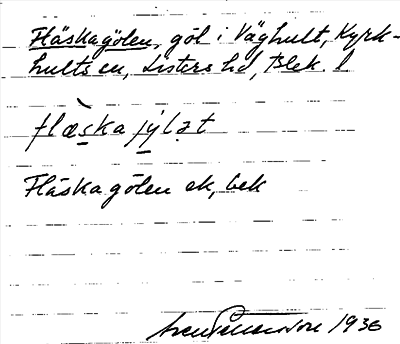 Fläskagölen, göl i Väghult, Kyrk-
hults sn, Listers hd, Blek. l
flæ̀ska jylət
Fläskagölen ek, bek
1936